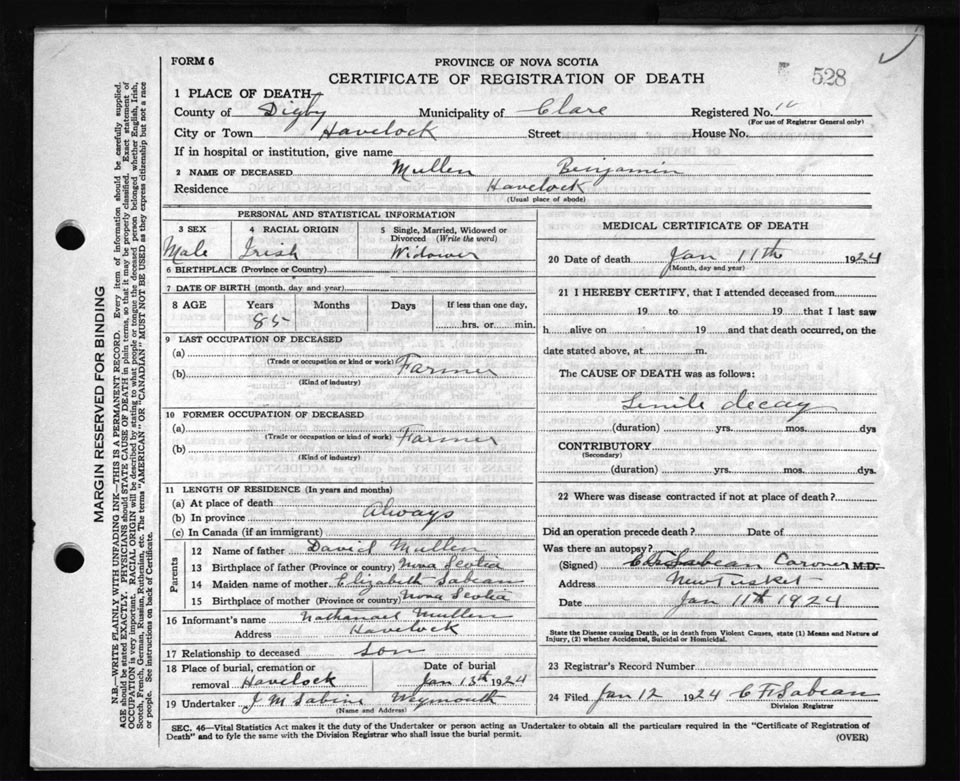 FORM 6
PROVINCE OF NOVA SCOTIA
CERTIFICATE OF REGISTRATION OF DEATH
528
1 PLACE OF DEATH
County of Digby Municipality of Clare Registered No.
(For use of Registrar General only)
City or Town Havelock Street House No.
If in hospital or institution, give name
2 NAME OF DECEASED Mullen Benjamin
Residence Havelock
(Usual place of abode)
PERSONAL AND STATISTICAL INFORMATION
3 SEX 4 RACIAL ORIGIN 5 Single, Married, Widowed or Divorced (Write the word)
Male Irish Widower
6 BIRTHPLACE (Province or Country)
7 DATE OF BIRTH (month, day and year)
8 AGE Years Months Days If less than one day,
85 hrs. or min.
9 LAST OCCUPATION OF DECEASED
(a)
(Trade or occupation or kind or work)
(b) Farmer
(Kind of industry)
10 FORMER OCCUPATION OF DECEASED
(a)
(Trade or occupation or kind of work) Farmer
(b)
(Kind of industry)
11 LENGTH OF RESIDENCE (In years and months)
(a) At place of death
(b) In province Always
(c) In Canada (if an immigrant)
Parents
12 Name of father David Mullen
13 Birthplace of father (Province or country) Nova Scotia
14 Maiden name of mother Elizabeth Sabean
15 Birthplace of mother (Province or country) Nova Scotia
16 Informant's name Nathanael Mullen
Address Havelock
17 Relationship to deceased son
18 Place of burial, cremation or Date of burial
removal Havelock Jan 13th 1924
19 Undertaker J M Sabine Weymouth
(Name and Address)
MEDICAL CERTIFICATE OF DEATH
20 Date of death Jan 11th 1924
(Month, day and year)
21 I HEREBY CERTIFY, that I attended deceased from
19 to 19 that I last saw
h alive on 19 and that death occurred, on the
date stated above, at m.
The CAUSE OF DEATH was as follows:
Senile decay
(duration) yrs. mos. dys
CONTRIBUTORY
(Secondary)
(duration) yrs. mos. dys.
22 Where was disease contracted if not at place of death?
Did an operation precede death? Date of
Was there an autopsy?
(Signed) Sabean Coroner M.D.
Address New Tusket
Date Jan 11th 1924
State the Disease causing Death, or in death from Violent Causes, state (1) Means and Nature of
Injury, (2) whether Accidental, Suicidal or Homicidal.
23 Registrar's Record Number
24 Filed Jan 12 1924 C F Sabean
Division Registrar
SEC. 46—Vital Statistics Act makes it the duty of the Undertaker or person acting as Undertaker to obtain all the particulars required in the "Certificate of Registration of
Death" and to fyle the same with the Division Registrar who shall issue the burial permit.
(OVER)
MARGIN RESERVED FOR BINDING
N.B.—WRITE PLAINLY WITH UNFADING INK—THIS IS A PERMANENT RECORD. Every item of information should be carefully supplied.
AGE should be stated EXACTLY. PHYSICIANS should STATE CAUSE OF DEATH in plain terms, so that it may be properly classified. Exact statement of
OCCUPATION is very important. RACIAL ORIGIN will be described by stating to what people or tongue the deceased person belonged whether English, Irish,
Scotch, French, German, Russian, Ruthenian, etc. The terms "AMERICAN" OR "CANADIAN" MUST NOT BE USED as they express citizenship but not a race
or people. See instructions on back of Certificate.